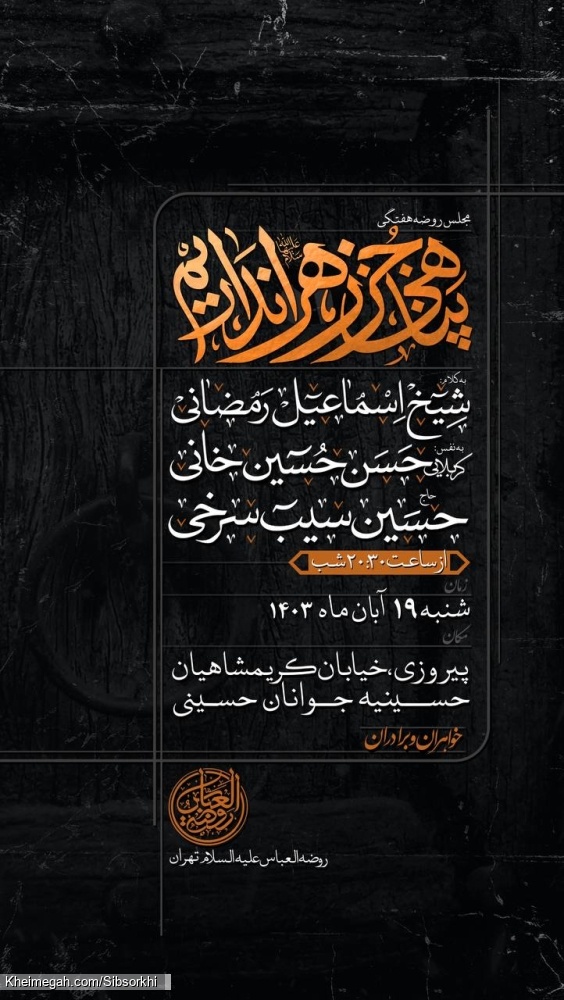 مجلس روضه هفتگی
پناهی بجز زهرا نداریم
سلام الله علیها
به کلام:
شیخ اسماعیل رمضانی
به نفس:
کربلایی حسن حسین خانی
حاج
حسین سیب سرخی
از ساعت ۲۰:۳۰ شب
زمان
شنبه ۱۹ آبان ماه ۱۴۰۳
مکان
پیروزی، خیابان کریمشاهیان
حسینیه جوانان حسینی
خواهران و برادران
روضة العباس
روضه العباس علیه السلام تهران
Kheimegah.com/Sibsorkhi